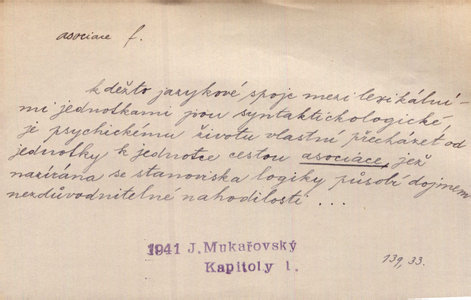 asociace f.
kdežto jazykové spoje mezi lexikální-
mi jednotkami jsou syntaktickologické
je psychickému životu vlastní přecházet od
jednotky k jednotce cestou asociace, jež
nazírána se stanoviska logiky působí dojmem
nezdůvodnitelné nahodilosti ...
1941 J. Mukařovský
Kapitoly 1.
139, 33.